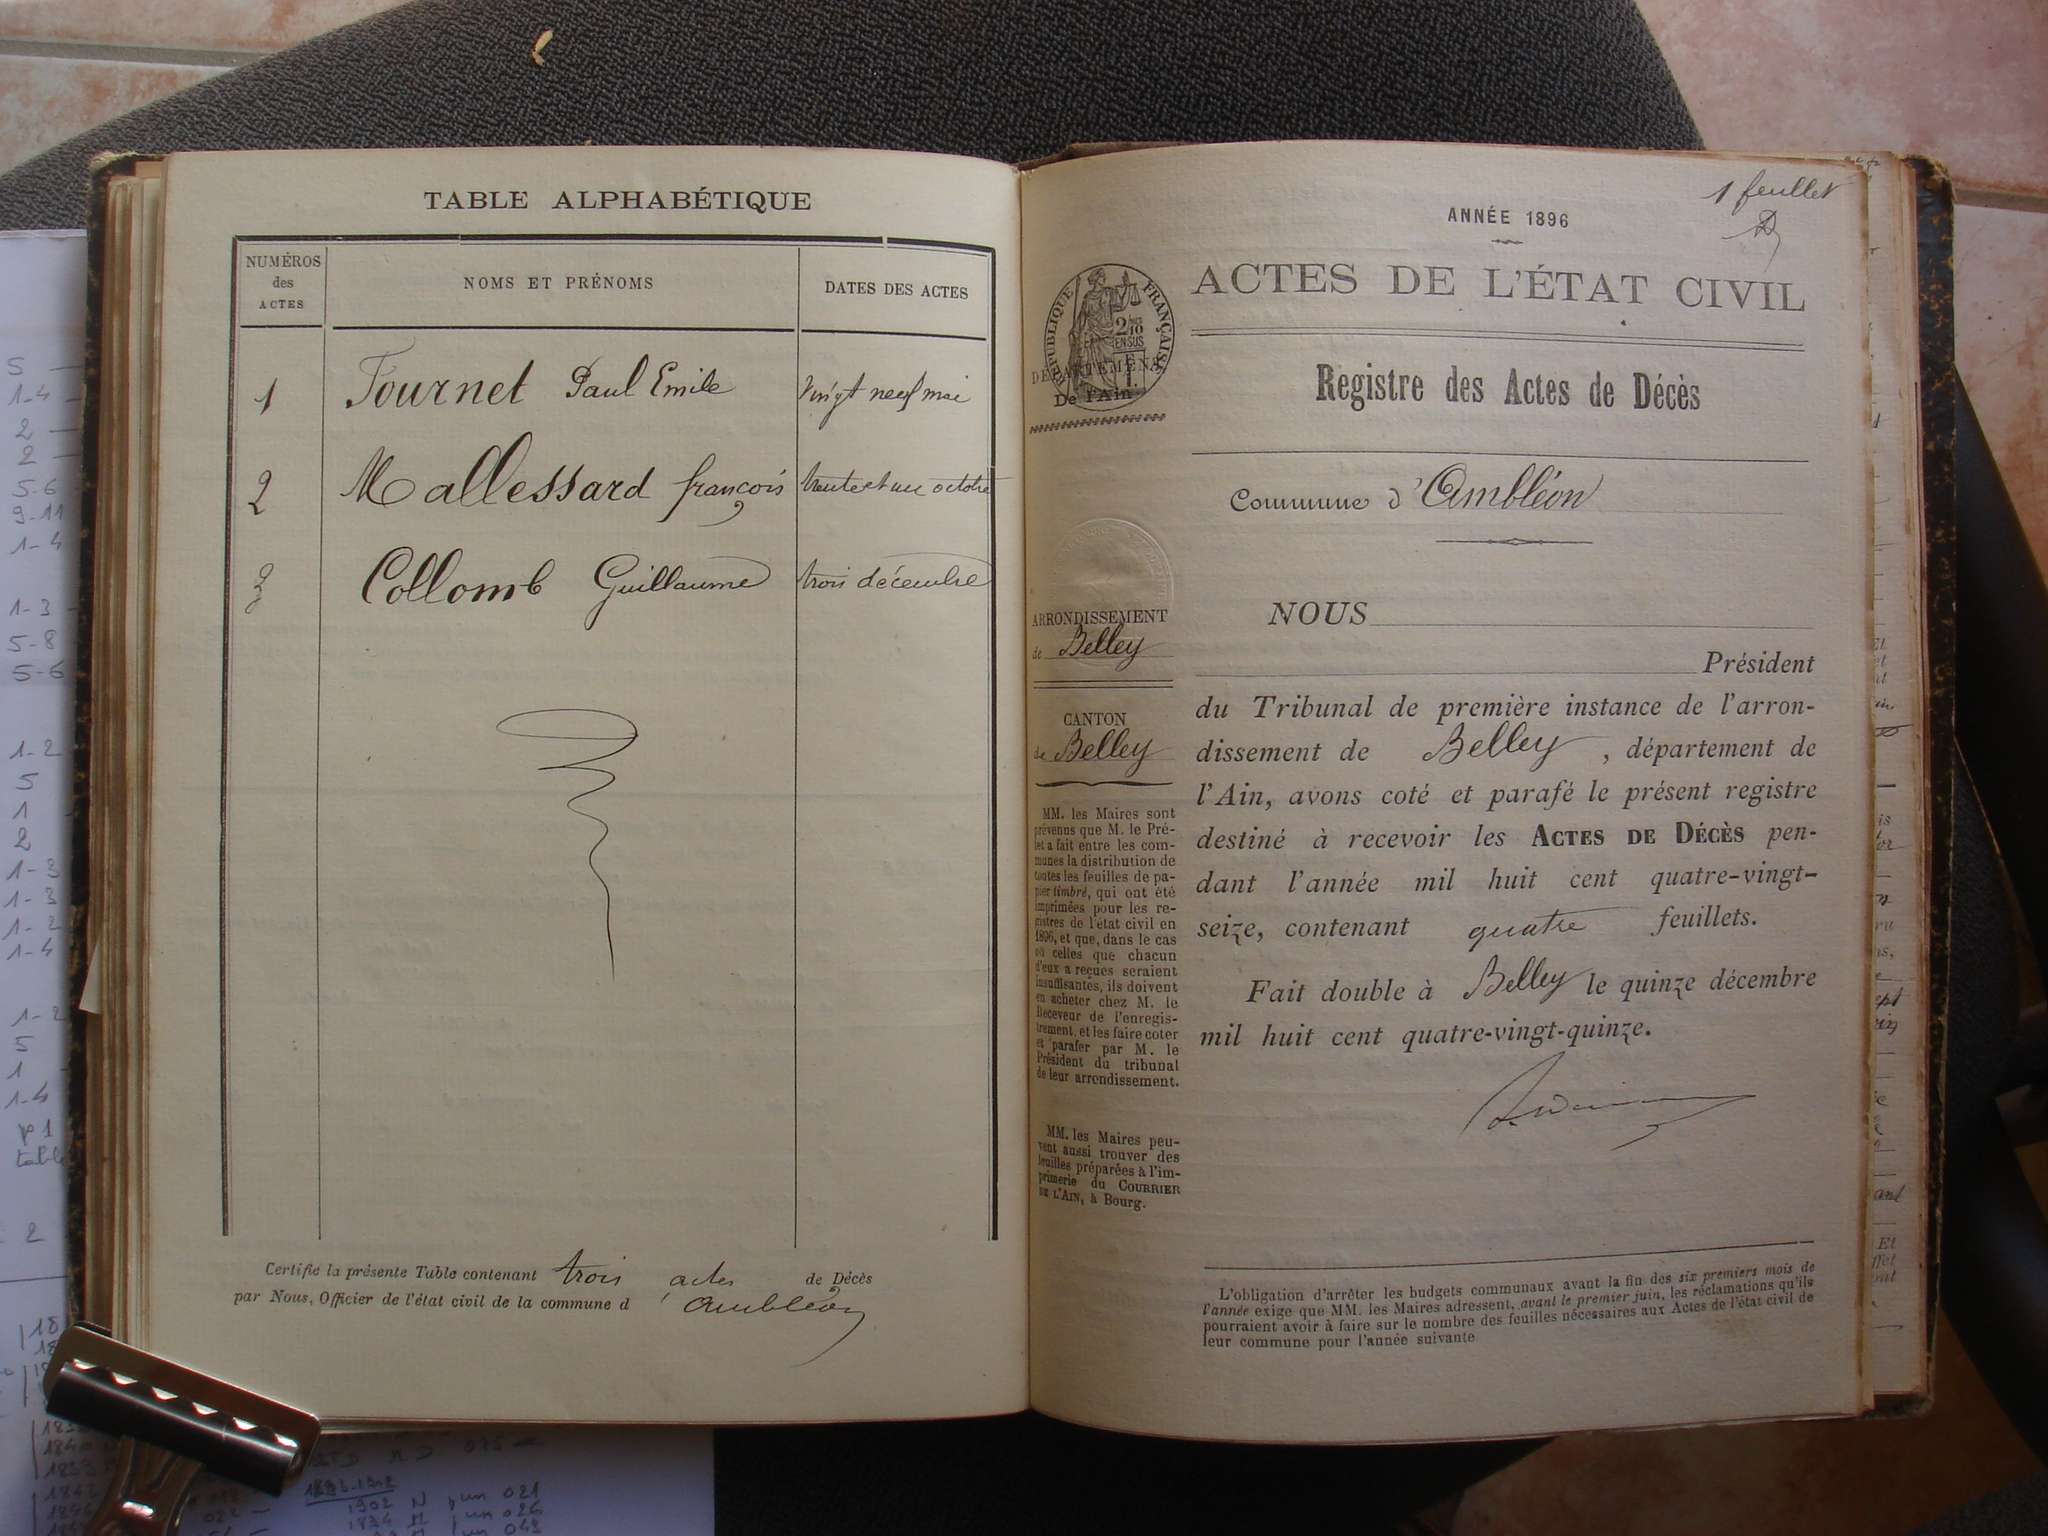 TABLE ALPHABÉTIQUE
NUMÉROS
des
ACTES
NOMS ET PRÉNOMS
DATES DES ACTES
1 Tournet Paul Emile vingt neuf mai
2 Mallessard françois trente et un octobre
3 Collomb Guillaume trois décembre
Certifie la présente Table contenant trois actes de Décès
par Nous, Officier de l'état civil de la commune d'Ambléon
1 feuillet
ANNÉE 1896
ACTES DE L'ÉTAT CIVIL
RÉPUBLIQUE FRANÇAISE
2/10 EN SUS
DÉPARTEMENT
De l'Ain
Registre des Actes de Décès
Commune d'Ambléon
ARRONDISSEMENT
de Belley
CANTON
de Belley
MM. les Maires sont
prévenus que M. le Pré-
fet a fait entre les com-
munes la distribution de
toutes les feuilles de pa-
pier timbré, qui ont été
imprimées pour les re-
gistres de l'état civil en
1896, et que, dans le cas
où celles que chacun
d'eux a reçues seraient
insuffisantes, ils doivent
en acheter chez M. le
Receveur de l'enregis-
trement, et les faire coter
et parafer par M. le
Président du tribunal
de leur arrondissement.
MM. les Maires peu-
vent aussi trouver des
feuilles préparées à l'im-
primerie du COURRIER
DE L'AIN, à Bourg.
NOUS
Président
du Tribunal de première instance de l'arron-
dissement de Belley, département de
l'Ain, avons coté et parafé le présent registre
destiné à recevoir les ACTES DE DÉCÈS pen-
dant l'année mil huit cent quatre-vingt-
seize, contenant quatre feuillets.
Fait double à Belley le quinze décembre
mil huit cent quatre-vingt-quinze.
L'obligation d'arrêter les budgets communaux avant la fin des six premiers mois de
l'année exige que MM. les Maires adressent, avant le premier juin, les réclamations qu'ils
pourraient avoir à faire sur le nombre des feuilles nécessaires aux Actes de l'état civil de
leur commune pour l'année suivante
5
1-4
2
2
5-6
9-11
1-4
1-3
5-8
5-6
1-2
5
1
2
1-3
1-3
1-2
1-4
1-2
5
1
1-4
p1
2
1902 N un 021